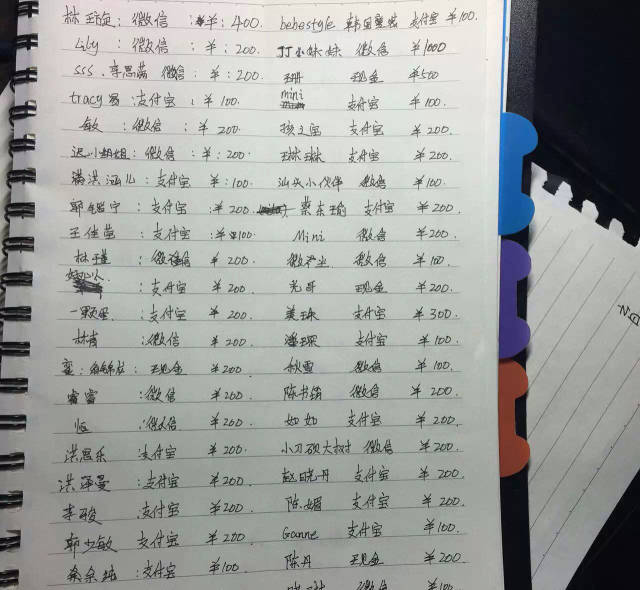 林 : 微信 : ¥: 400. bebestyle 韩国 支付宝 ¥100.
Lily : 微信 : ¥: 200. 丁丁小妹妹 微信 ¥1000
sss.李思 微信: ¥: 200. 珊 现金 ¥500
tracy : 支付宝 : ¥ 100. mini 支付宝 ¥100.
敏 : 微信 : ¥ 200. 支付宝 ¥200.
迟小姐姐: 微信 : ¥: 200. 琳琳 支付宝 ¥200.
满洪涵儿: 支付宝 ¥: 100. 汕头小伙伴 微信 ¥100.
郭 宁: 支付宝 : ¥ 200. 东 支付宝 ¥200.
王佳莹 : 支付宝 : ¥ 100. Mini 微信 ¥200.
林 : 微信 ¥ 200. 微 微信 ¥100.
: 支付宝 ¥ 200. 光哥 现金 ¥200.
一颗 : 支付宝 ¥ 200. 美珠 支付宝 ¥300.
林肯 : 微信 ¥ 200. 潘琛 支付宝 ¥100.
: 现金 ¥200. 秋雪 微信 ¥100.
睿睿 : 微信 ¥200. 陈书 微信 ¥200.
恒 : 微信 ¥200. 如如 支付宝 ¥200.
洪思乐 支付宝 ¥200. 小刀砍大树 微信 ¥200.
洪泽曼 : 支付宝 ¥200. 赵晓丹 支付宝 ¥200.
李骏 : 支付宝 ¥200. 陈媚 支付宝 ¥200.
郭少敏 支付宝 ¥200. Ganne 支付宝 ¥100.
纯: 支付宝 ¥100. 陈丹 现金 ¥200.
微信 ¥100